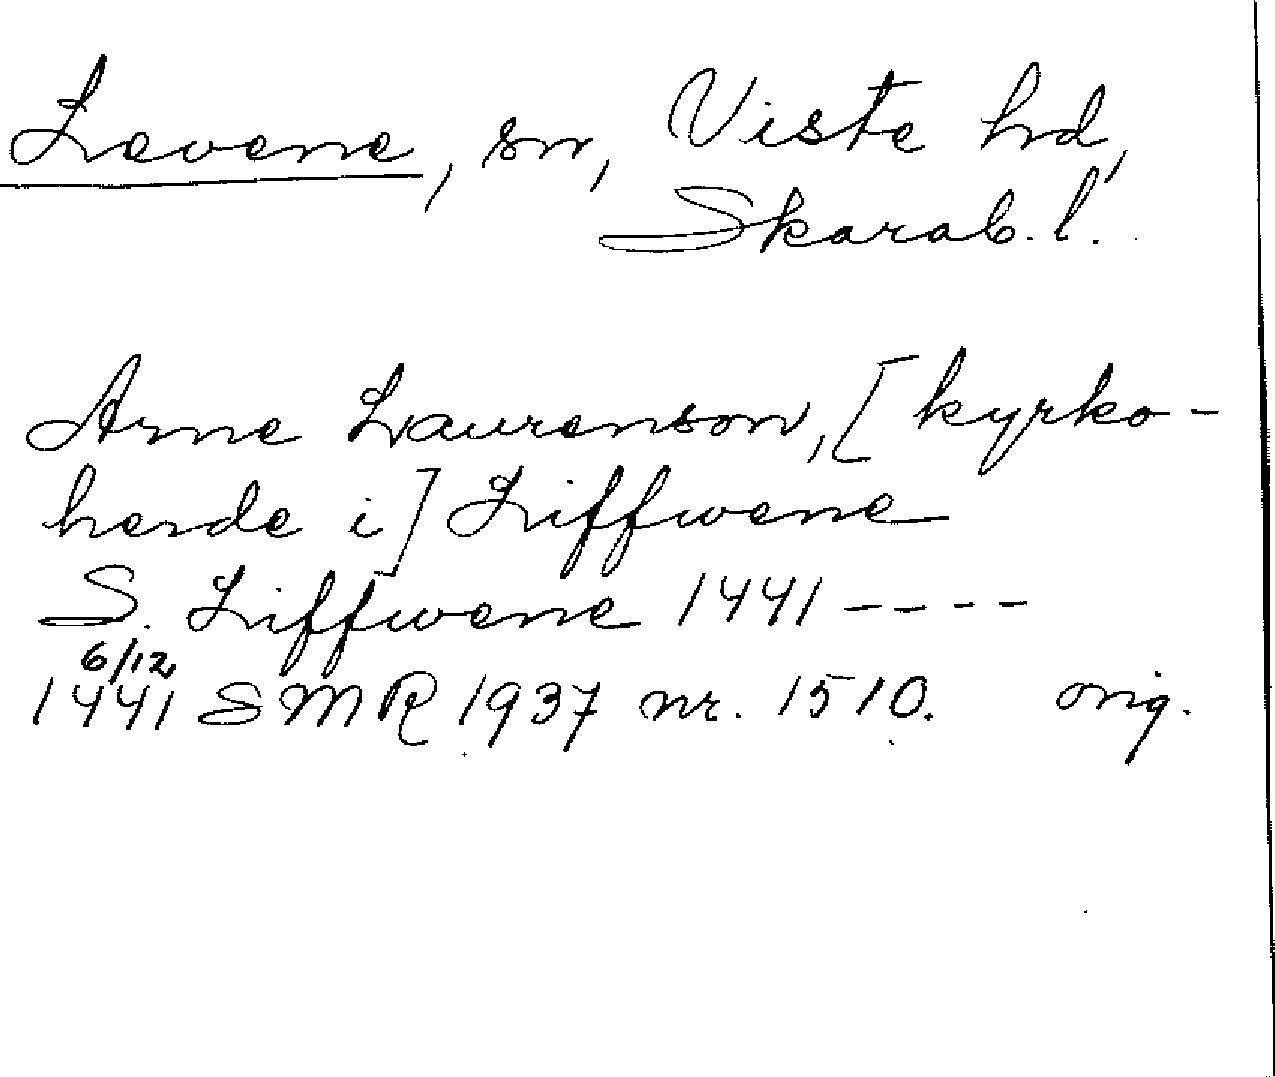 Levene, sn, Viste hd,
Skarab. l.
Arne Laurenson, [kyrko-
herde i] Liffwene
S. Liffwene 1441 ----
6/12
1441 SMR 1937 nr. 1510. orig.